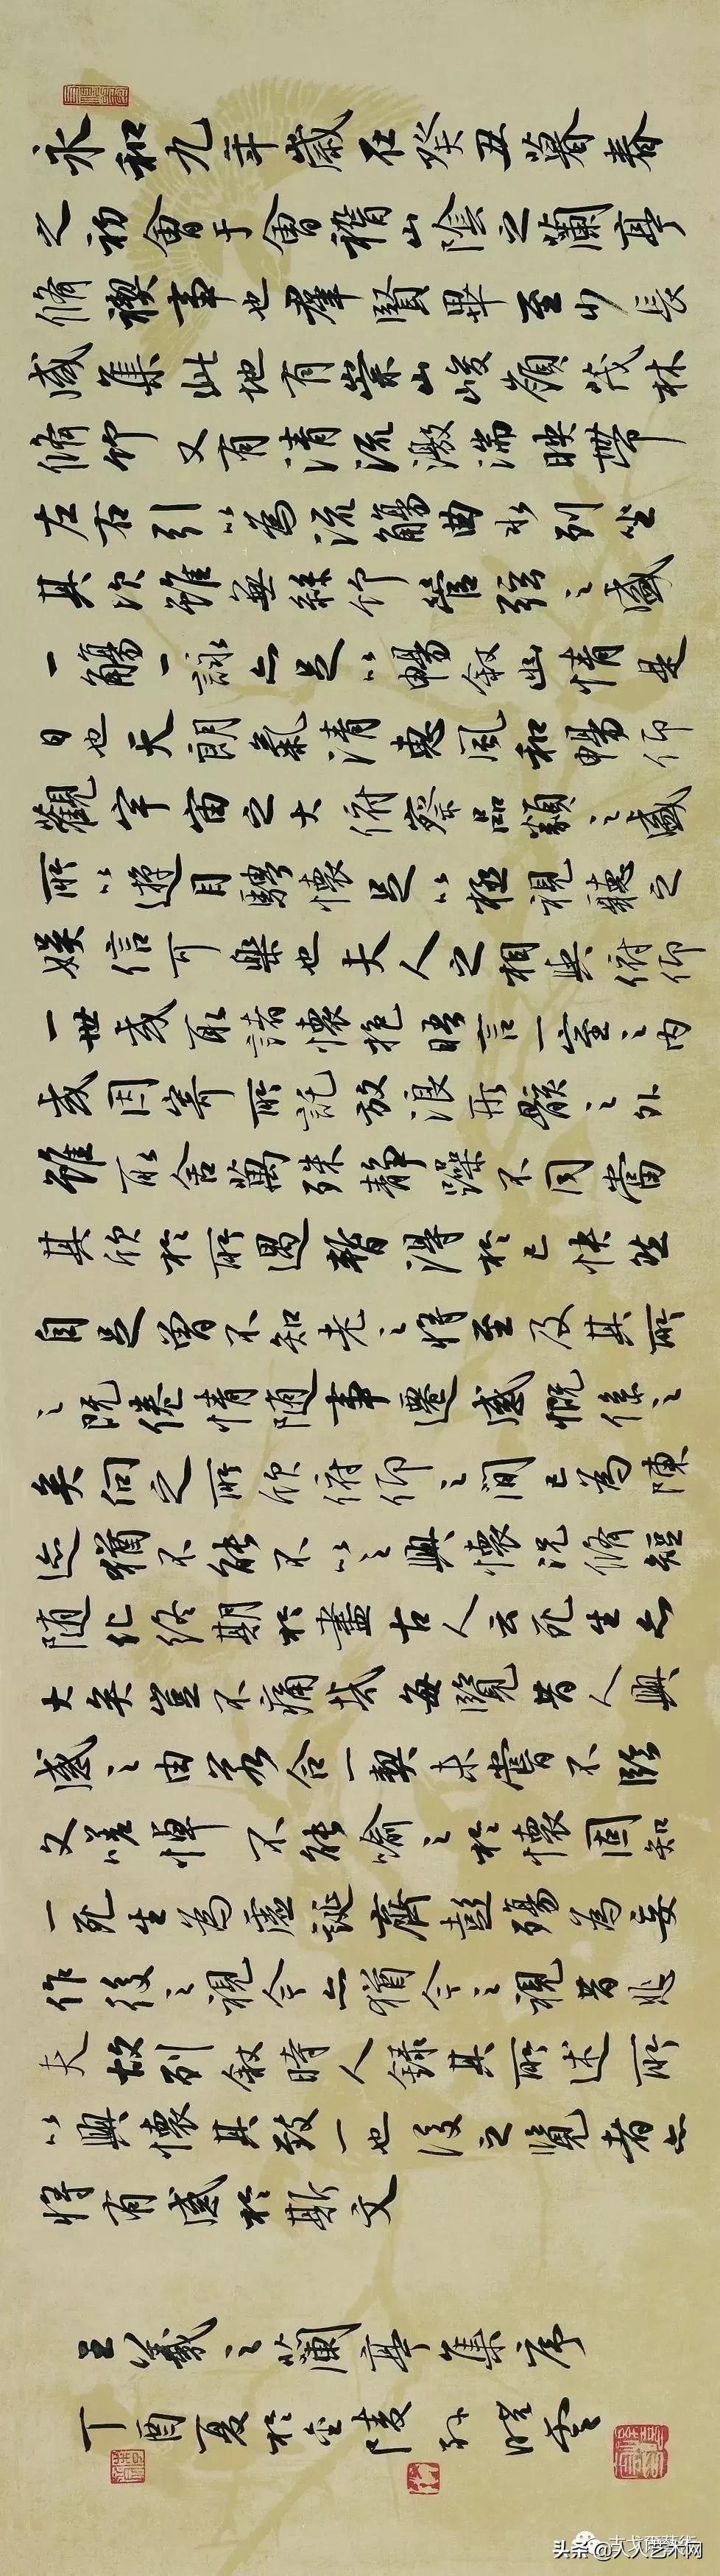 永和九年歲在癸丑暮春
之初會于會稽山陰之蘭亭
脩禊事也羣賢畢至少長
咸集此地有崇山峻嶺茂林
脩竹又有清流激湍映帶
左右引以為流觴曲水列坐
其次雖無絲竹管弦之盛
一觴一詠亦足以暢敘幽情是
日也天朗氣清惠風和暢仰
觀宇宙之大俯察品類之盛
所以遊目騁懷足以極視聽之
娛信可樂也夫人之相與俯仰
一世或取諸懷抱晤言一室之內
或因寄所託放浪形骸之外
雖取舍萬殊靜躁不同當
其欣於所遇暫得於己快然
自足曾不知老之將至及其所
之既倦情随事遷感慨係之
矣向之所欣俯仰之間已為陳
迹猶不能不以之興懷況脩短
随化終期於盡古人云死生亦
大矣豈不痛哉每覽昔人興
感之由若合一契未嘗不臨
文嗟悼不能喻之於懷固知
一死生為虛誕齊彭殤為妄
作後之視今亦猶今之視昔悲
夫故列敘時人錄其所述所
以興懷其致一也後之覽者亦
將有感於斯文
王羲之蘭亭集序
丁酉夏於金陵孫曉雲
头条 @人人艺术网